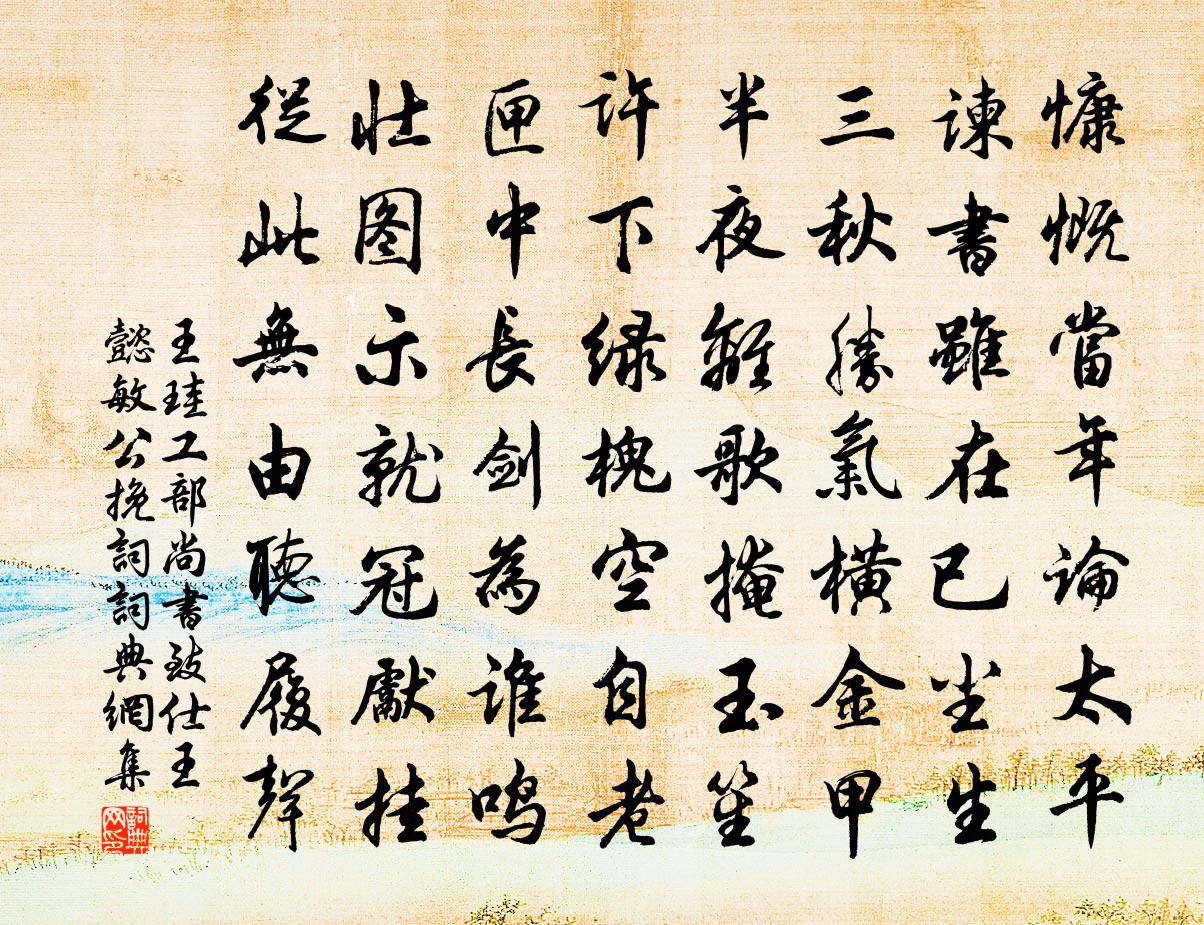 慷慨當年論太平
諫書雖在已尘生
三秋勝氣橫金甲
半夜離歌掩玉笙
許下绿槐空自老
匣中長剑為誰鸣
壮图示就冠獻挂
從此無由聽履聲
王珪工部尚書致仕王
懿敏公挽詞詞典網集
詞典
网印